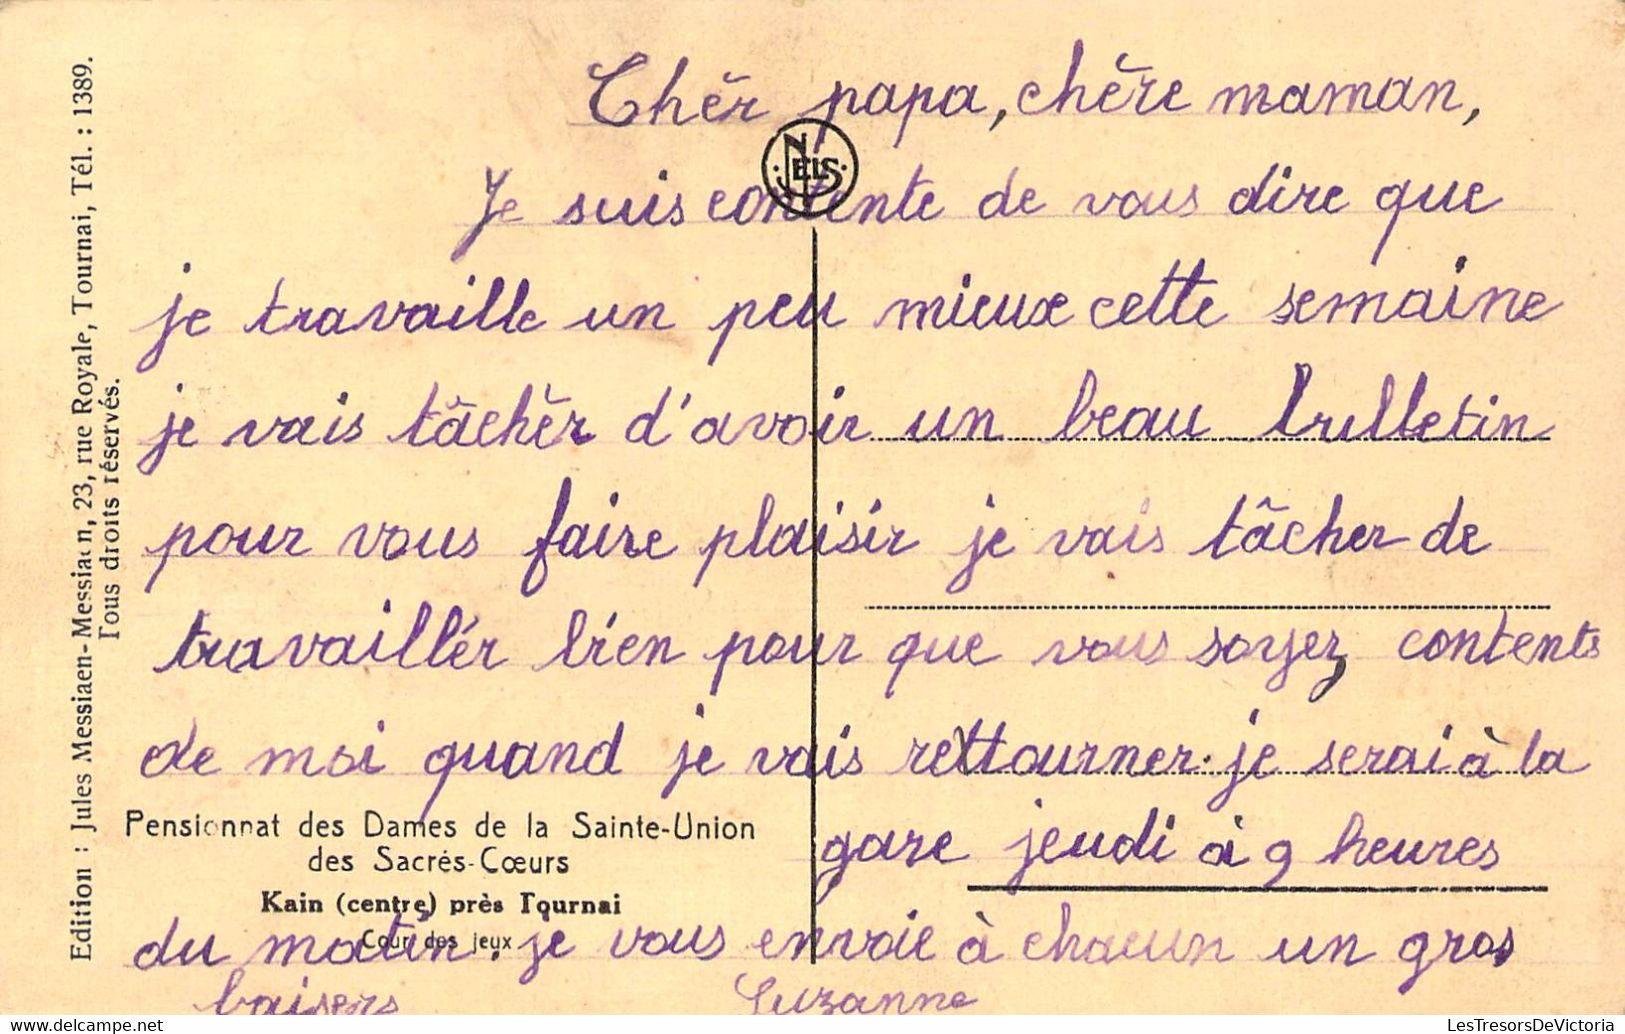 Chèr papa, chère maman,
NELS
Je suis contente de vous dire que
je travaille un peu mieux cette semaine
je vais tâchèr d'avoir un beau bulletin
pour vous faire plaisir je vais tâcher de
travaillér bien pour que vous soyez contents
de moi quand je vais rettourner. je serai à la
gare jeudi à 9 heures
du matin. je vous envoie à chacun un gros
baisers Suzanne
Pensionnat des Dames de la Sainte-Union
des Sacrés-Cœurs
Kain (centre) près Tournai
Cour des jeux
Edition : Jules Messiaen-Messiaen, 23, rue Royale, Tournai, Tél. : 1389.
Tous droits réservés.
LesTresorsDeVictoria
www.delcampe.net